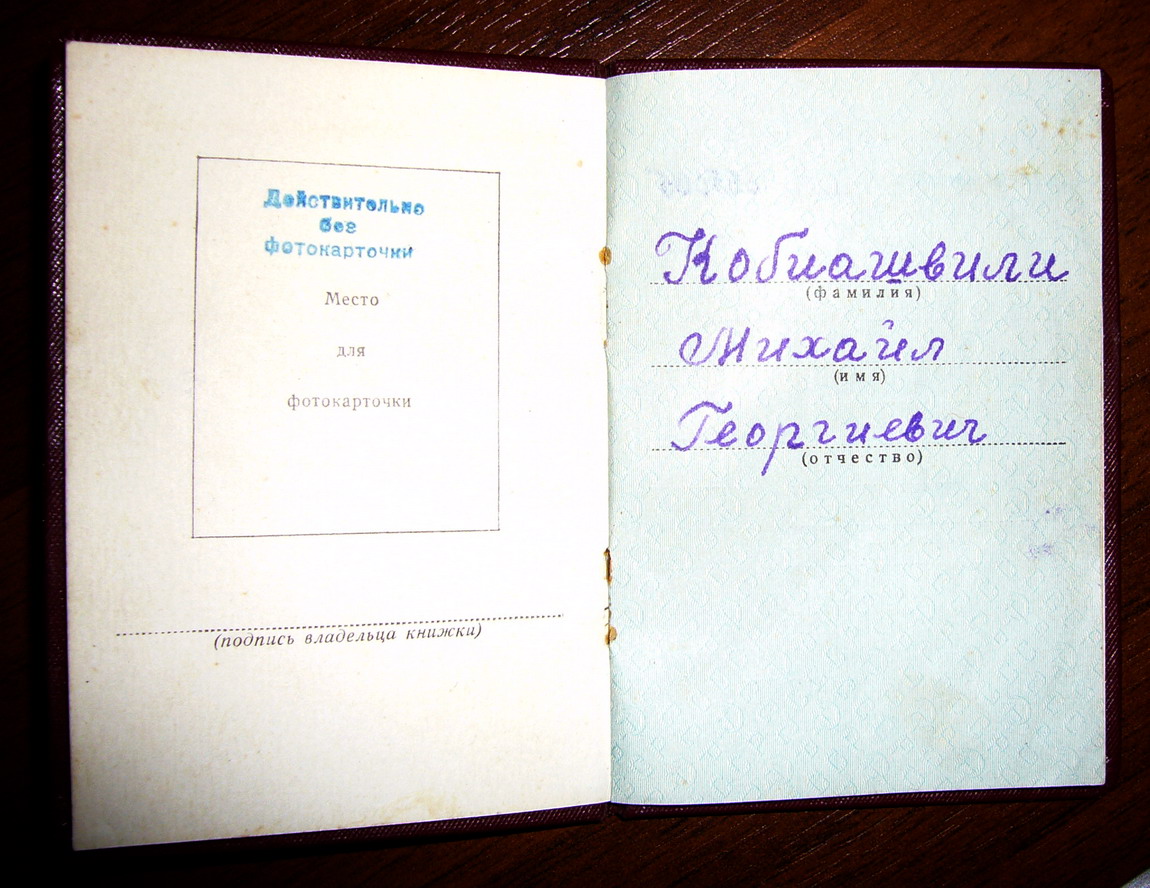 Действительно
без
фотокарточки
Место
для
фотокарточки
(подпись владельца книжки)
Кобиашвили
(фамилия)
Михаил
(имя)
Георгиевич
(отчество)